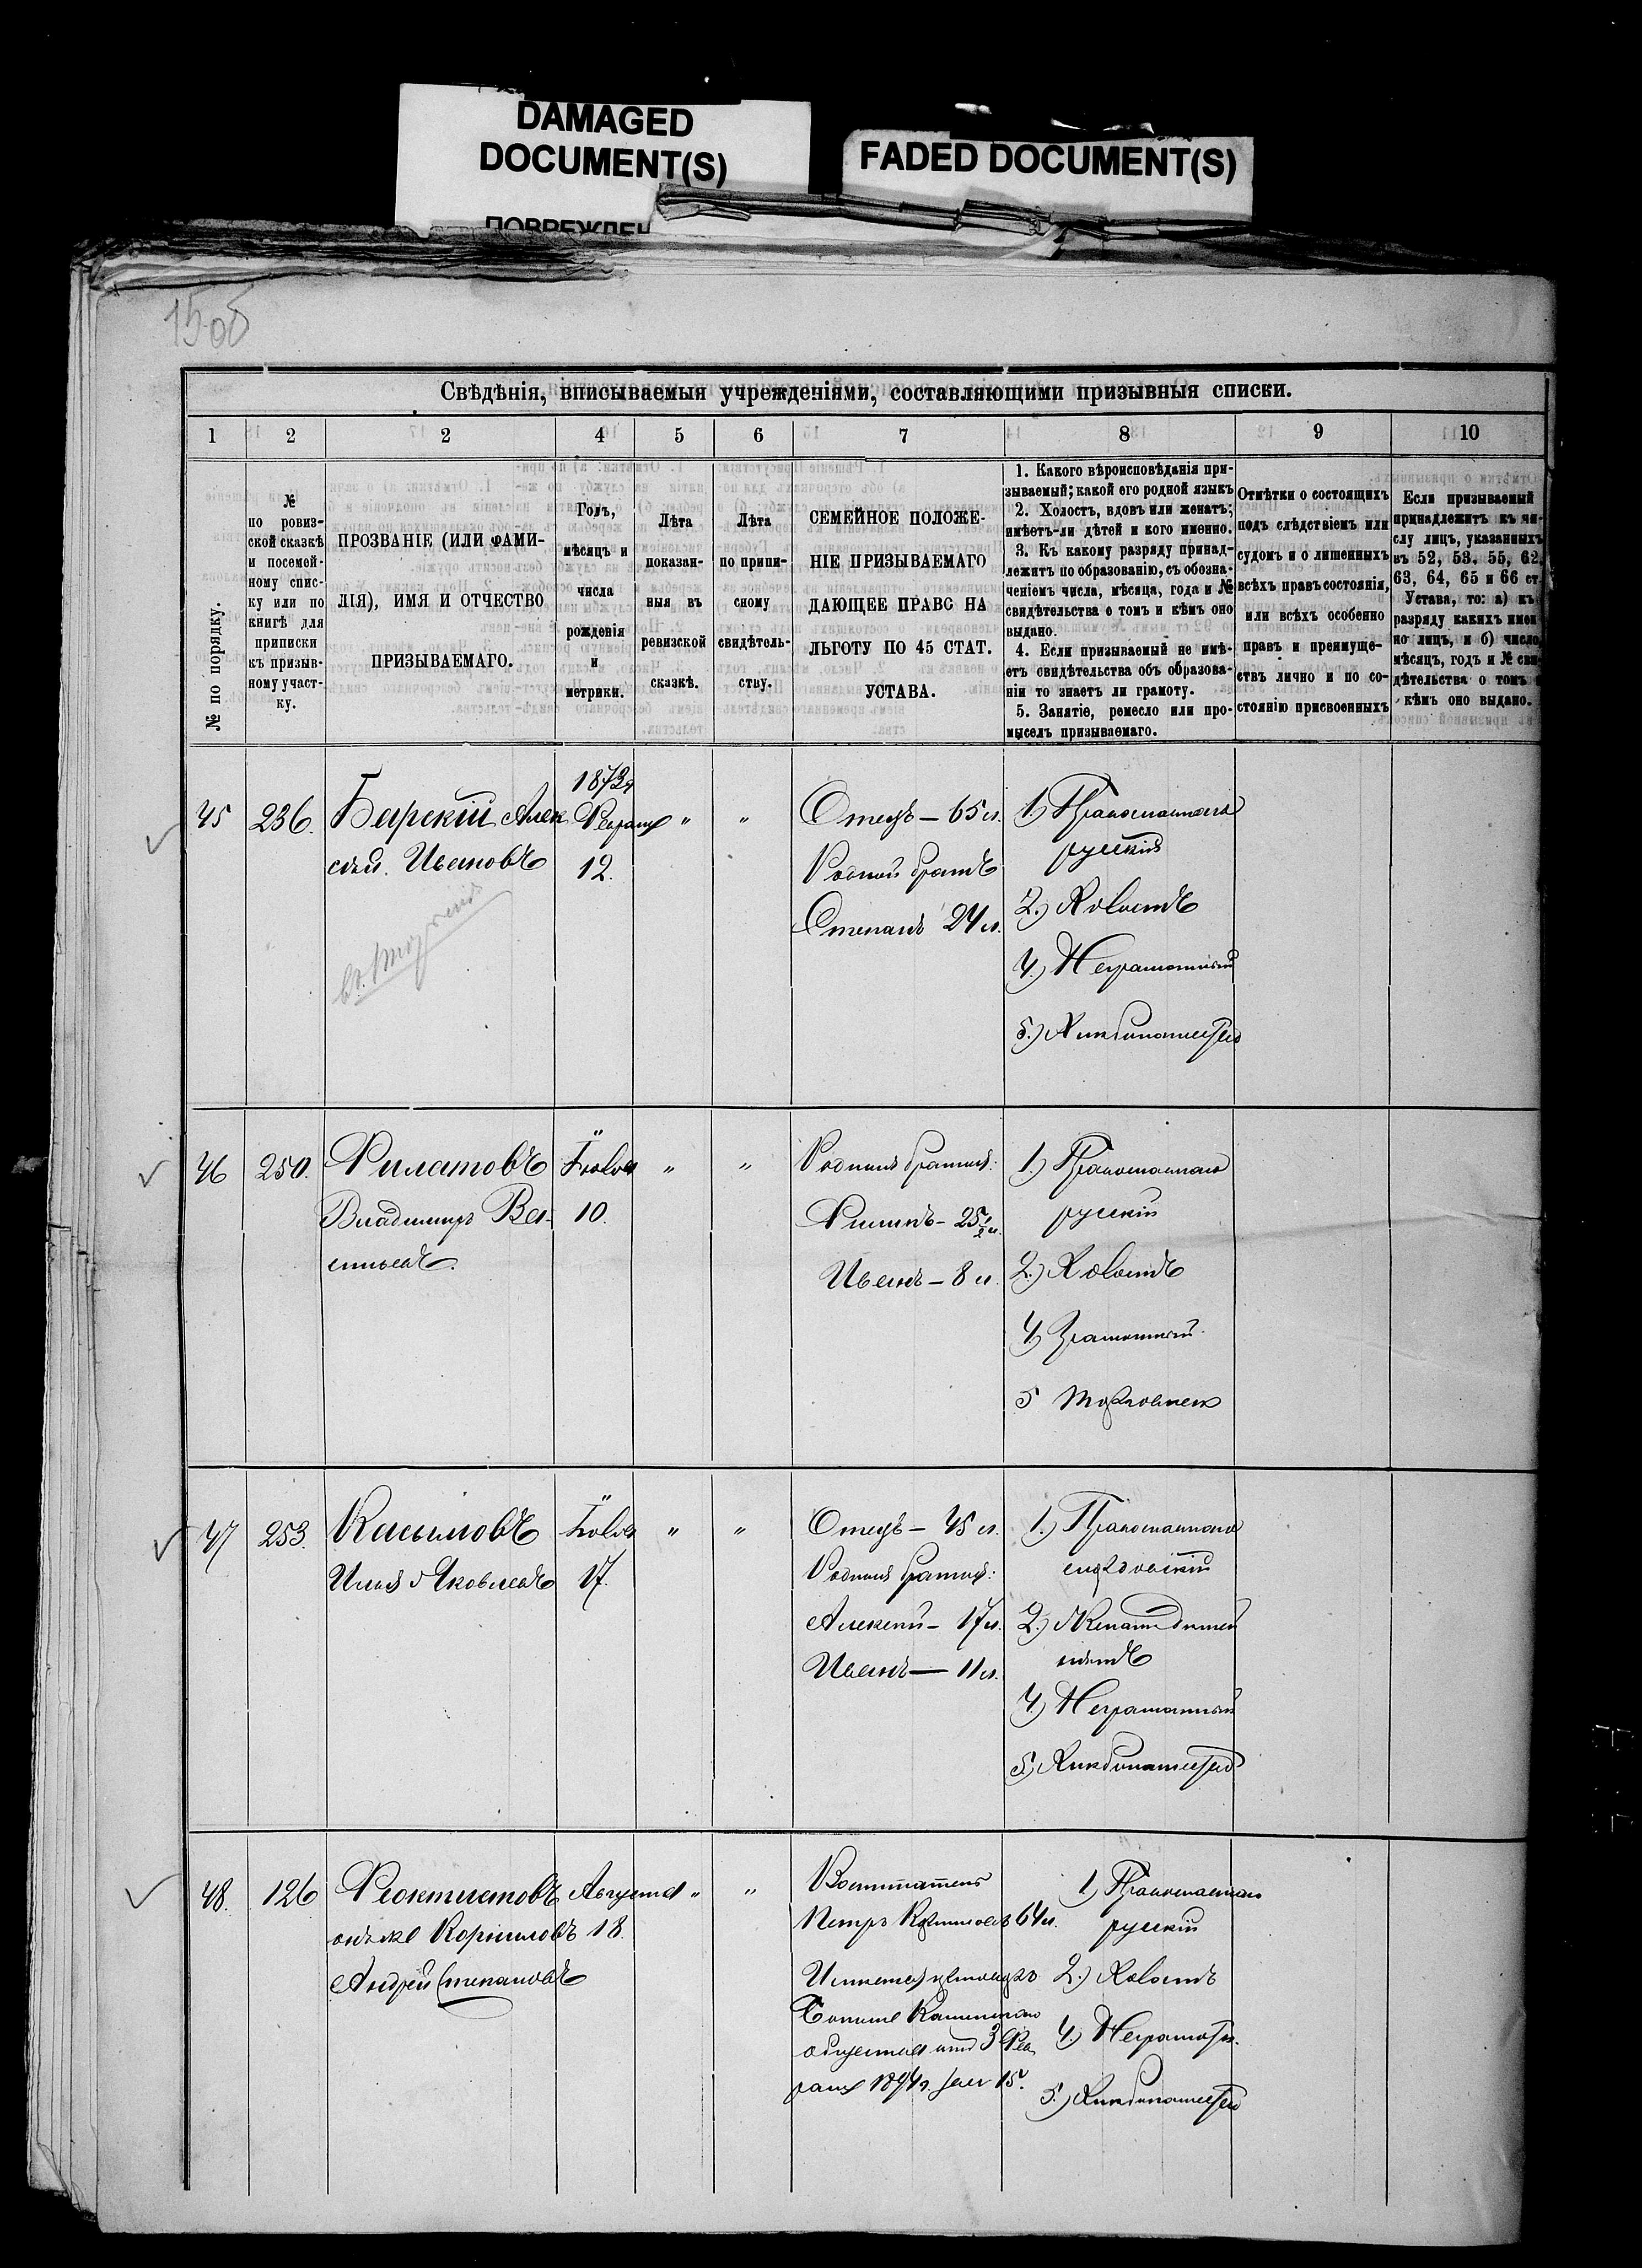 DAMAGED
DOCUMENT(S)
FADED DOCUMENT(S)
Свѣдѣнія, вписываемыя учрежденіями, составляющими призывныя списки.
1 2 2 4 5 6 7 8 9 10
№ по порядку.
№
по ровиз-
ской сказкѣ
и посемей-
ному спис-
ку или по
книгѣ для
приписки
къ призыв-
ному участ-
ку.
ПРОЗВАНІЕ (ИЛИ ФАМИ-
ЛІЯ), ИМЯ И ОТЧЕСТВО
ПРИЗЫВАЕМАГО.
Годъ,
мѣсяцъ и
числа
рожденія
и
метрики.
Лѣта
показан-
ныя въ
ревизской
сказкѣ.
Лѣта
по припи-
сному
свидѣтель-
ству.
СЕМЕЙНОЕ ПОЛОЖЕ-
НІЕ ПРИЗЫВАЕМАГО
ДАЮЩЕЕ ПРАВС НА
ЛЬГОТУ ПО 45 СТАТ.
УСТАВА.
1. Какого вѣроисповѣданія при-
зываемый; какой его родной языкъ
2. Холостъ, вдовъ или женатъ;
имѣетъ-ли дѣтей и кого именно.
3. Къ какому разряду принад-
лежитъ по образованію, съ обозна-
ченіемъ числа, мѣсяца, года и №
свидѣтельства о томъ и кѣмъ оно
выдано.
4. Если призываемый не имѣ-
етъ свидѣтельства объ образова-
ніи то знаетъ ли грамоту.
5. Занятіе, ремесло или про-
мыселъ призываемаго.
Отмѣтки о состоящихъ
подъ слѣдствіемъ или
судомъ и о лишенныхъ
всѣхъ правъ состоянія,
или всѣхъ особенно
правъ и преимуще-
ствъ лично и по со-
стоянію присвоенныхъ
Если призываемый
принадлежитъ къ чи-
слу лицъ, указанныхъ
въ 52, 53, 55, 62,
63, 64, 65 и 66 ст.
Устава, то: а) къ
разряду какихъ имен
но лицъ, и б) число
мѣсяцъ, годъ и № сви-
дѣтельства о томъ и
кѣмъ оно выдано.
45 236. Барскій Алек
сѣй Ивановъ
1873г
Февраля
12.
" "
Отецъ — 65 л.
Родной братъ
Степанъ 24 л.
1.) Православнаго
русскій
2.) Холостъ
4.) Неграмотный
5.) Хлѣбопашество
46 250. Филатовъ
Владиміръ Ва-
сильевъ.
Іюля
10.
" "
Родные братья:
Филипъ — 25½ л.
Иванъ — 8 л.
1.) Православнаго
русскій
2.) Холостъ
4) Грамотный.
5 Торговлею
47 253. Касымовъ
Илья Яковлевъ
Іюля
17.
" "
Отецъ — 45 л.
Родные братья:
Алексей — 17 л.
Иванъ — 11 л.
1.) Православнаго
мордовскій
2.) Женатъ дѣтей
нѣтъ
4.) Неграмотный
5.) Хлѣбопашество
48. 126 Феоктистовъ
онъ же Корниловъ
Андрей Степановъ
Августа
18.
" "
Воспитатель
Петръ Корниловъ 64 л.
общества отъ 3 Фев
раля
1) Православнаго
русскій
2.) Холостъ
4.) Неграмотн.
5.) Хлѣбопашество